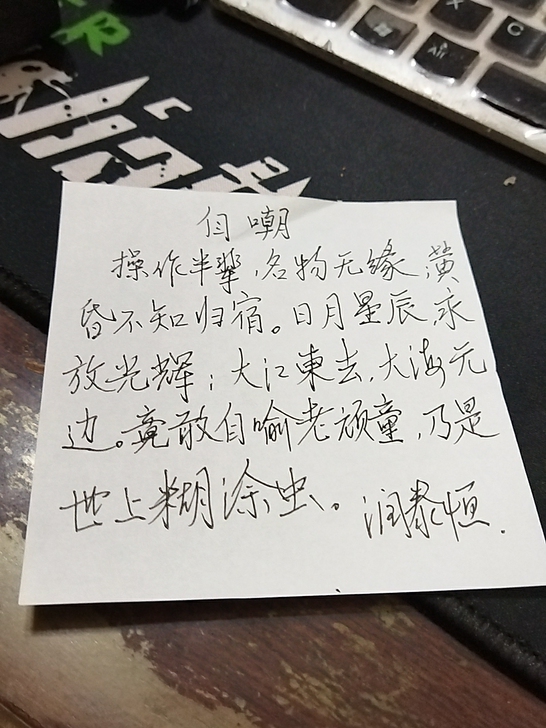 自嘲
操作半辈,名物无缘,黄
昏不知归宿。日月星辰,永
放光辉;大江東去,大海无
边。竟敢自喻老顽童,乃是
世上糊涂虫。润泰恒.
X
C
Alt